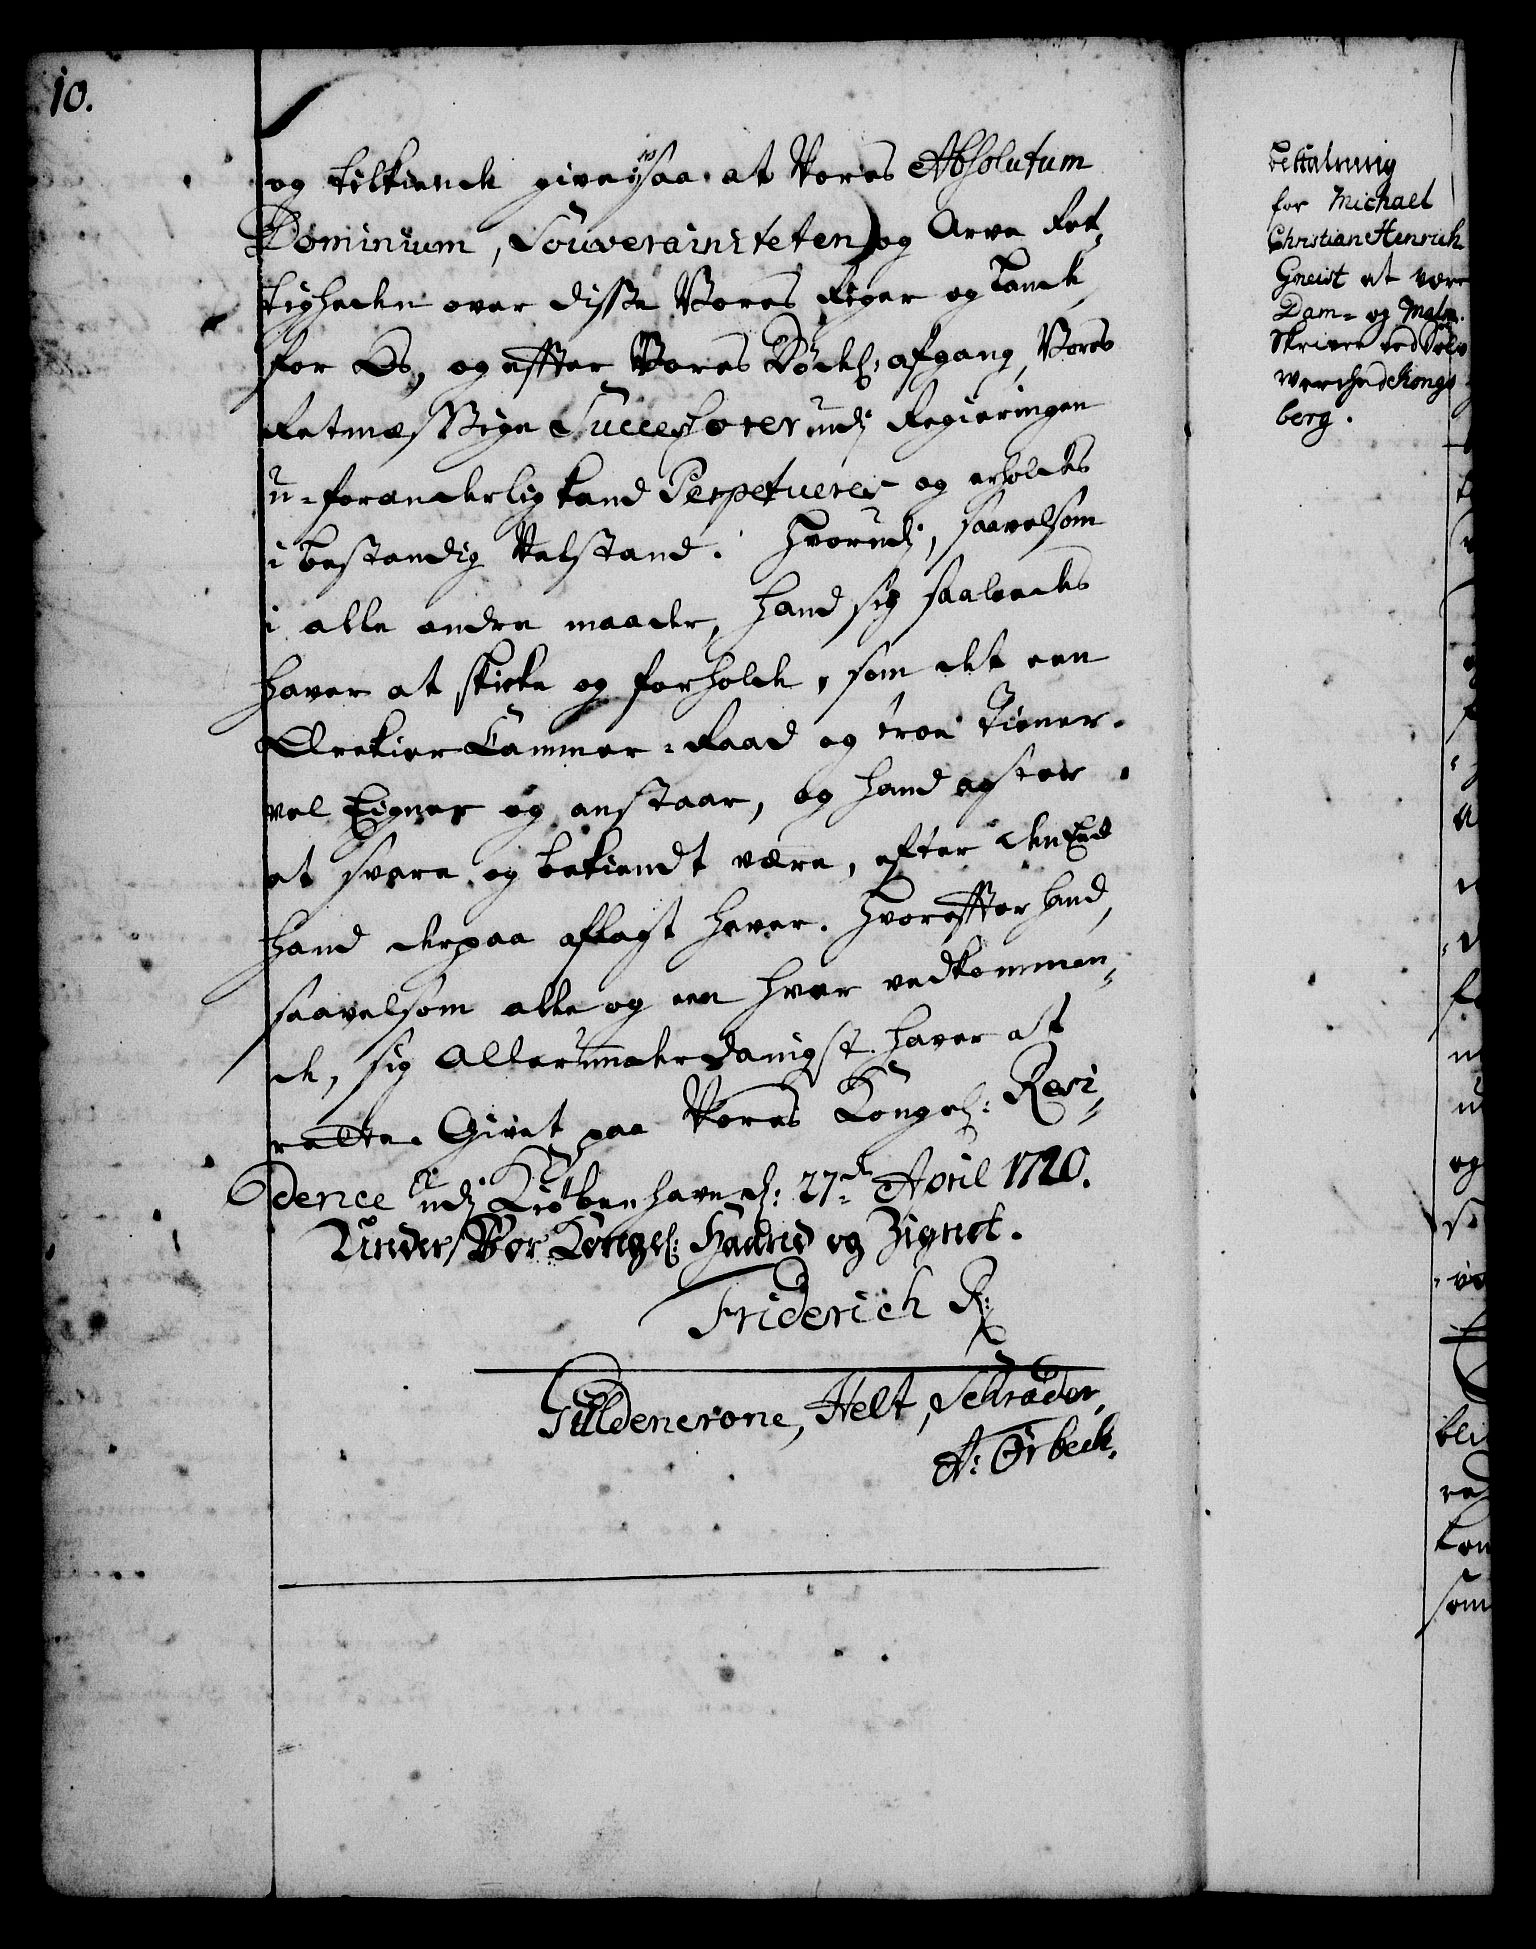 10.
og tilkiende givet; saa at Vores Absolutum
Dominium, Souverainiteten og Arve Ret-
tigheder over disse Voris Riger og Lande
for Os, og effter Vores Dødel: afgang, Vores
Retmæssige Successorer udj Regieringen
u-foranderlig kand Perpetueres og erholdes
i bestandig Velstand. Hvorudj, saavelsom
i alle andre maader, hand sig saaledes
haver at skicke og forholde, som det een
Ærekier Cammer-Raad og troe Tiener
vel Eigner og anstaar, og hand agter
at svare og bekiendt være, efter den Eed
hand derpaa aflagt haver. Hvoreffter hand,
saavelsom alle og een hver vedkommen-
de, sig allerunderdanigst haver at
rette. Givet paa Vores Kongel: Resi-
dence udj Kiøbenhavn d: 27de April 1720.
Under Vor Kongel: Haand og Zignet.
Friderich R:
Güldencrone, Helt, Schrader,
A: Ørbeck.
Bestalning
for Michael
Christian Henrich
Gneist at være
Dam- og Malm-
Skriver ved Sølv
Werchet Kongs
berg.